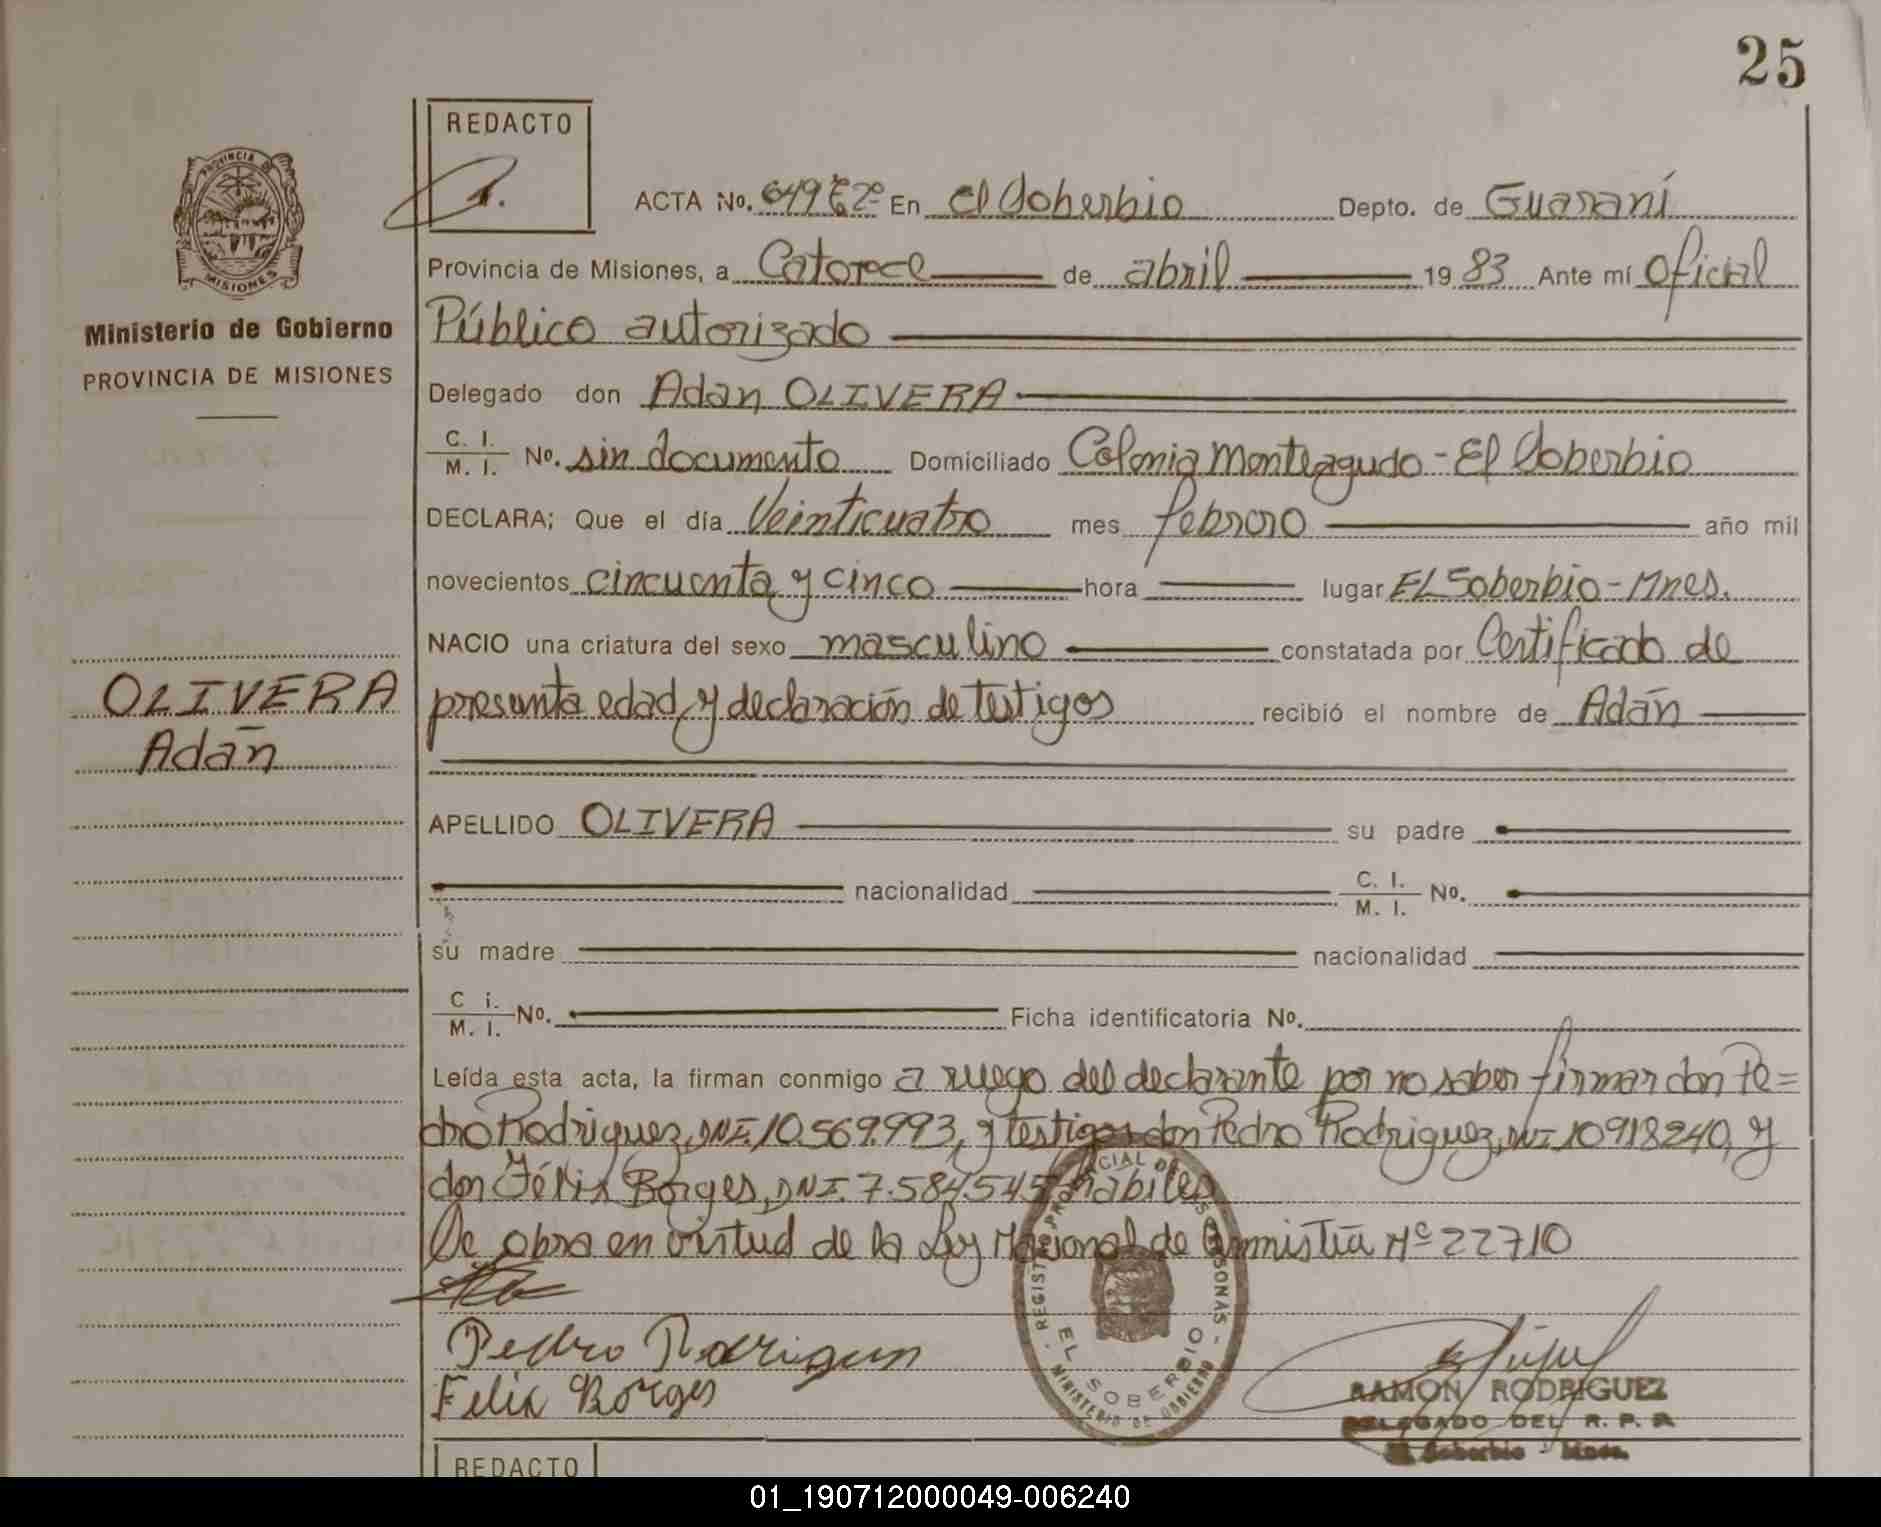 25
REDACTO
PROVINCIA DE
MISIONES
Ministerio de Gobierno
PROVINCIA DE MISIONES
ACTA No. 649 Eº En El Soberbio Depto. de Guaraní
Provincia de Misiones, a Catorce de abril 19 83 Ante mí Oficial
Público autorizado
Delegado don Adan OLIVERA
C. I. / M. I. No. sin documento Domiciliado Colonia Monteagudo - El Soberbio
DECLARA; Que el día Veinticuatro mes febrero año mil
novecientos cincuenta y cinco hora lugar EL Soberbio - Mnes.
NACIO una criatura del sexo masculino constatada por Certificado de
presunta edad y declaración de testigos recibió el nombre de Adán
OLIVERA
Adán
APELLIDO OLIVERA su padre
nacionalidad C. I. / M. I. No.
su madre nacionalidad
C i. / M. I. No. Ficha identificatoria No.
Leída esta acta, la firman conmigo a ruego del declarante por no saber firmar don Pe=
dro Rodriguez, DNI. 10.569.993, y testigos don Pedro Rodriguez, DNI 10918240, y
don Félix Borges, DNI. 7.584.545 hábiles
De obra en virtud de la Ley Nacional de Amnistía Nº 22710
Pedro Rodriguez
Felix Borges
EL SOBERBIO
MINISTERIO DE GOBIERNO
RAMON RODRIGUEZ
DELEGADO DEL R. P. P.
El Soberbio - Mnes.
REDACTO
01_190712000049-006240